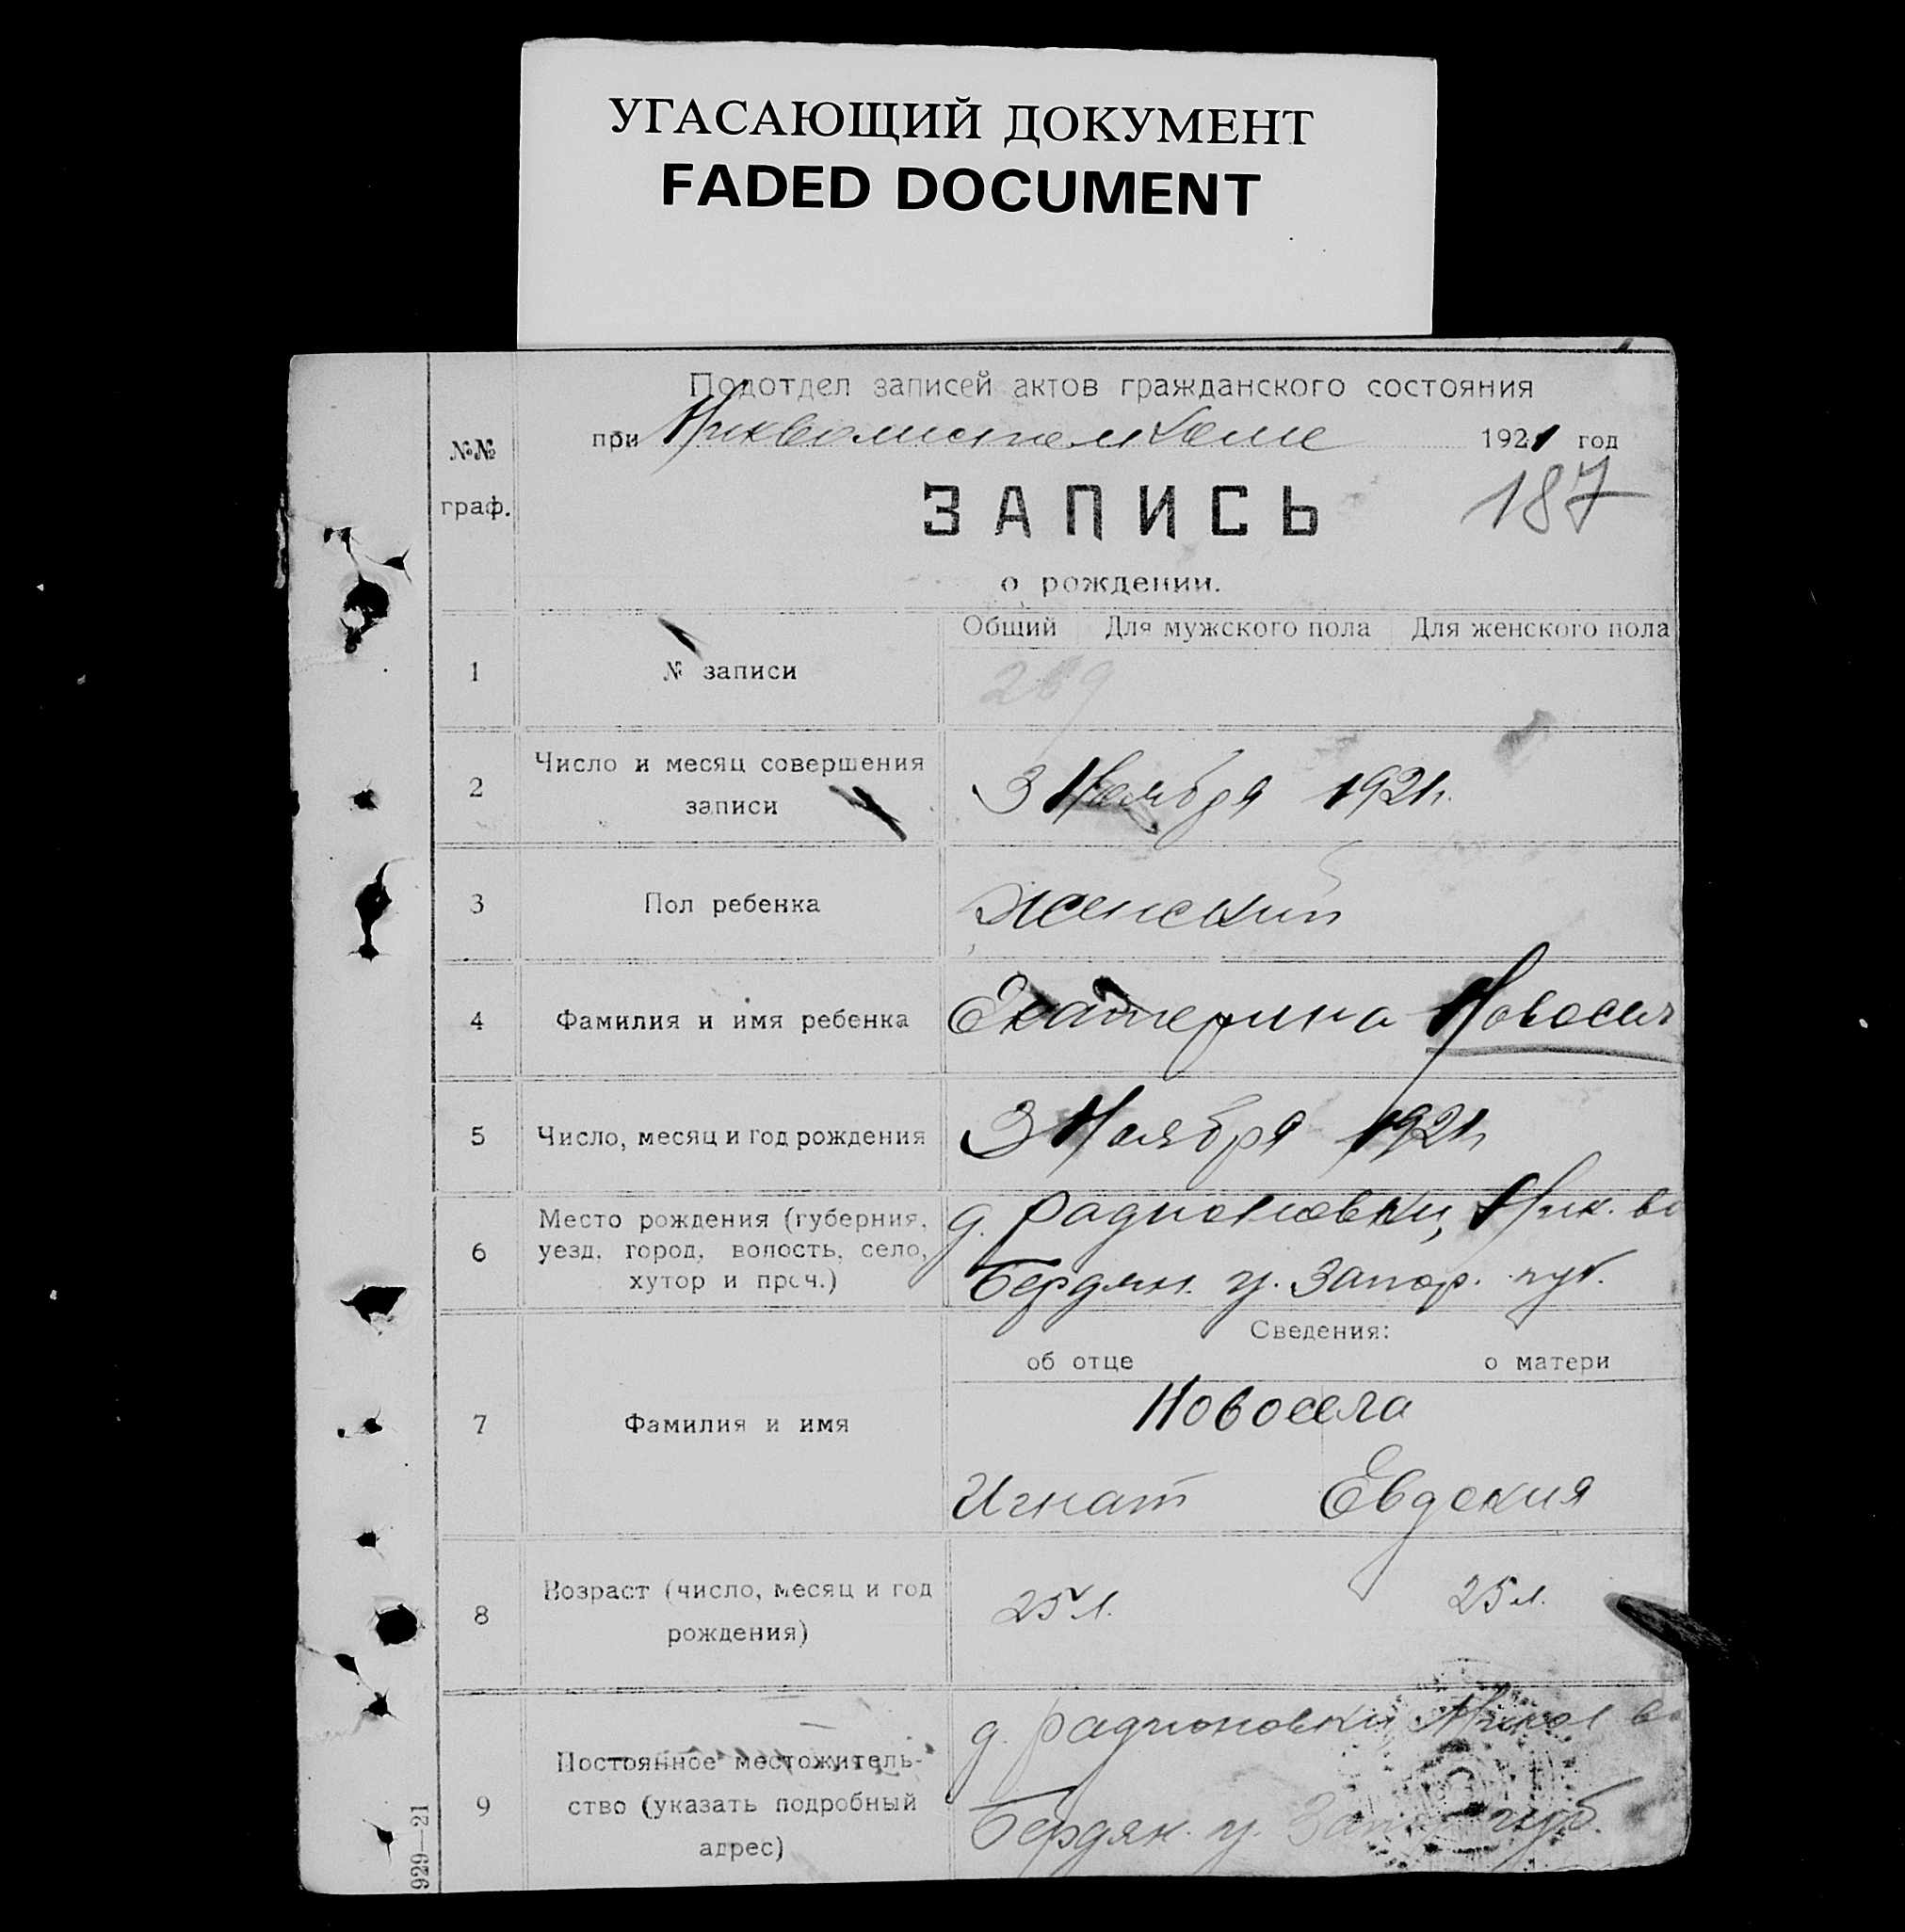 УГАСАЮЩИЙ ДОКУМЕНТ
FADED DOCUMENT
Подотдел записей актов гражданского состояния
№№ граф.
при 1921 год
187
ЗАПИСЬ
о рождении.
Общий Для мужского пола Для женского пола
1 № записи 269
2 Число и месяц совершения
записи
3 Ноября 1921г.
3 Пол ребенка Женский
4 Фамилия и имя ребенка Екатерина Новосел
5 Число, месяц и год рождения 3 Ноября 1921г
6 Место рождения (губерния,
уезд, город, волость, село,
хутор и проч.)
д. Радионовки, Ник. во
Бердян. у. Запор. губ.
Сведения:
об отце о матери
7 Фамилия и имя
Новосела
Игнат Евдокия
8 Возраст (число, месяц и год
рождения)
25 л. 25 л.
9 Постоянное местожитель-
ство (указать подробный
адрес)
д. Радионовки Никол во
Бердян. у. Запор губ.
929—21